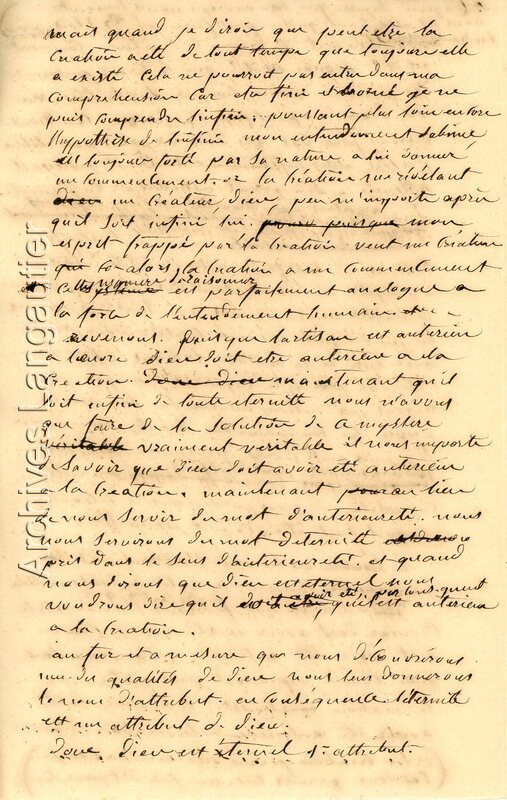 mais quand je dirois que peut etre la
Creation a été de tout temps que toujours elle
a existé cela ne pourroit pas entrer dans ma
comprehension car etre fini et borné je ne
puis comprendre l'infini. poussant plus loin encore
l'hypothèse de l'infini mon entendement
est toujours porté par sa nature a lui donner
un commencement. or la Création me révélant
dieu un Createur Dieu, peu m'importe après
qu'il soit infini lui. puisque mon
esprit frappé par la Création veut un Créateur
qui alors la Creation a un commencement
Cette maniere de raisonner est parfaitement analogue a
la force de l'entendement humain.
revenons. puisque l'artisan est anterieur
a l'œuvre Dieu doit etre anterieur a la
Creation. donc dieu maintenant qu'il
soit infini de toute eternité nous n'avons
que faire de la solution de ce mystere
véritable vraiment veritable il nous importe
de savoir que Dieu doit avoir été anterieur
a la Creation. maintenant pour au lieu
de nous servir du mot d'anterieureté. nous
nous servirons du mot d'eternité
pris dans le sens d'anterieureté. et quand
nous dirons que dieu est eternel nous
voudrons dire qu'il doit etre avoir été, par conséquent qu'il est anterieur
a la Creation.
au fur et a mesure que nous découvrirons
une des qualités de dieu nous leur donnerons
le nom d'attribut. en conséquence l'eternité
est un attribut de Dieu.
Donc Dieu est éternel 1er attribut.
Archives Langautier